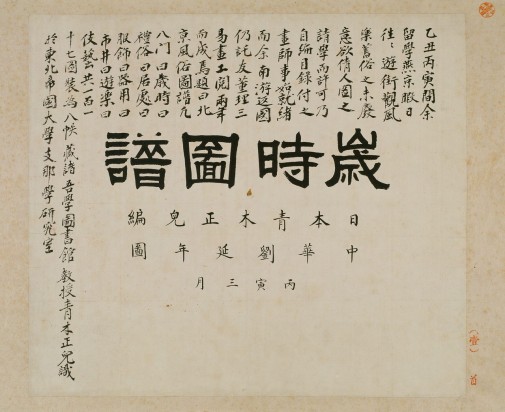 乙丑丙寅間余
留學燕京暇日
往〻遊街觀風
樂舊俗之未廢
意欲倩人圖之
請學而許可乃
自編目錄付之
畫師事如就緒
而余南游
仍託友董理三
易畫工閲兩年
而成焉題曰北
京風俗圖譜凡
八門曰歲時曰
禮俗曰居處曰
服飾曰器用曰
市井曰遊樂曰
伎藝共一百一
十七圖裝為八帙藏諸吾學圖書館 教授青木正兒識
於東北帝國大學支那學研究室
歲時圖譜
日本青木正兒編
中華劉延年圖
丙寅三月
(壹) 首